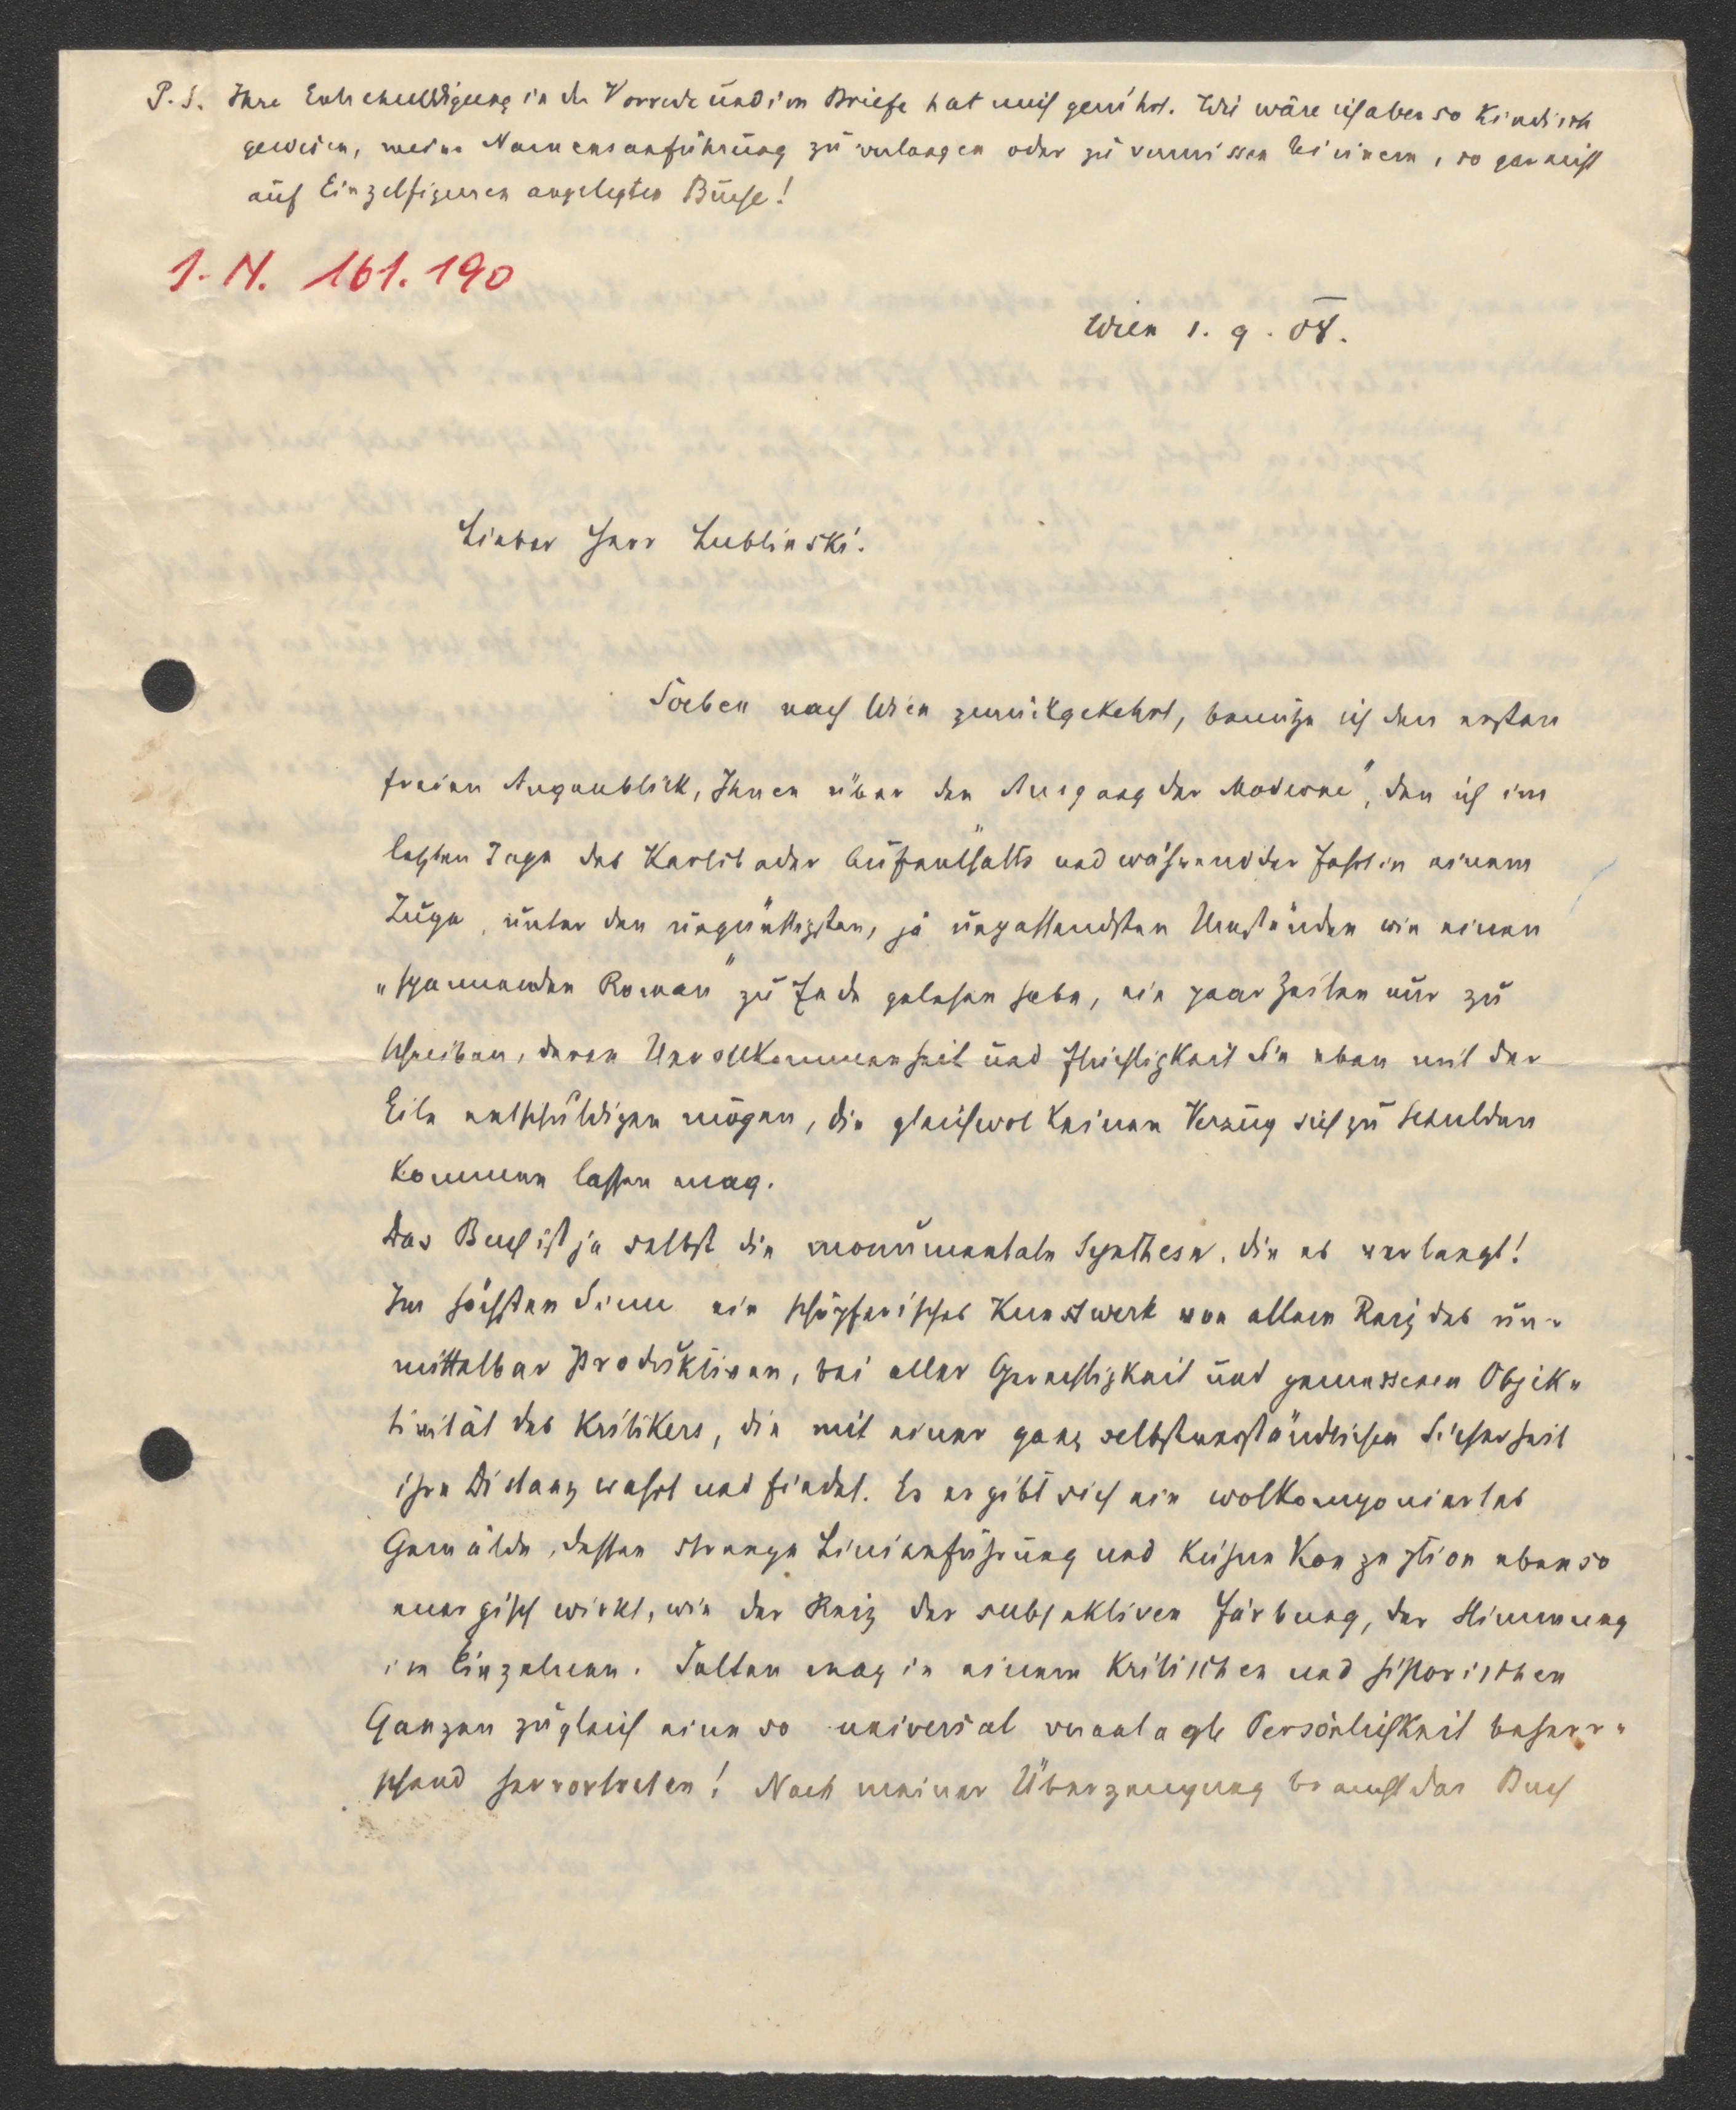 P.S. Ihre Entschuldigung in der Vorrede und im Briefe hat mich gerührt. Wie wäre ich aber so kindisch
gewesen, meine Namensanführung zu verlangen oder zu vermissen bei einem, so gar nicht
auf Einzelfiguren angelegten Buche!
I. N. 161.190
Wien 1. 9. 08.
Lieber Herr Lublinski.
Soeben nach Wien zurückgekehrt, benutze ich den ersten
freien Augenblick, Ihnen über den „Ausgang der Moderne“, den ich im
letzten Tage des Karlsbader Aufenthalts und während der Fahrt in einem
Zuge, unter den ungünstigsten, ja unpassendsten Umständen wie einen
„spannenden Roman“ zu Ende gelesen habe, ein paar Zeilen nur zu
schreiben, deren Unvollkommenheit und Flüchtigkeit Sie eben mit der
Eile entschuldigen mögen, die gleichwol keinen Verzug sich zu Schulden
kommen lassen mag.
Das Buch ist ja selbst die monumentale Synthese, die es verlangt!
Im höchsten Sinne ein schöpferisches Kunstwerk von allem Reiz des un-
mittelbar Produktiven, bei aller Gerechtigkeit und gemessenen Objek-
tivität des Kritikers, die mit einer ganz selbstverständlichen Sicherheit
ihre Distanz wahrt und findet. Es ergibt sich ein wolkomponiertes
Gemälde, dessen strenge Linienführung und kühne Konzeption ebenso
energisch wirkt, wie der Reiz der subjektiven Färbung, der Stimmung
im Einzelnen. Selten mag in einem kritischen und historischen
Ganzen zugleich eine so universal veranlagte Persönlichkeit beherr-
schend hervortreten! Nach meiner Überzeugung braucht das Buch